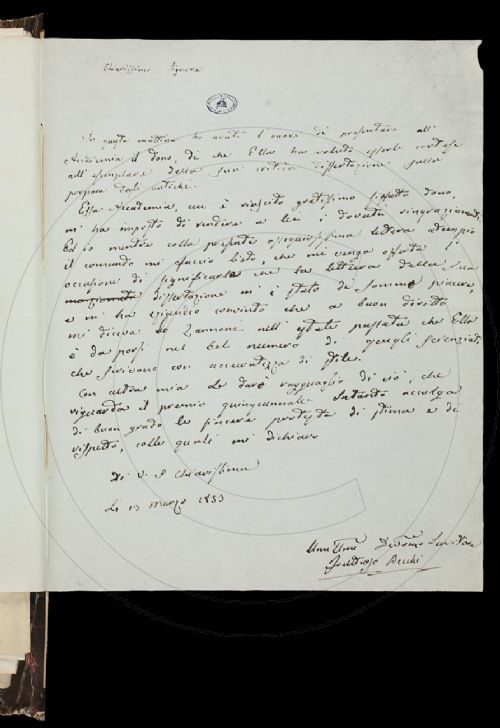 Chiarissimo Signore
In questa mattina ho avuto l'onore di presentare all'
Accademia il dono, di che Ella ha voluto essere cortese
all' esemplare della sua critica dissertazione sulla
porpora degli antichi.
Essa Accademia, cui è riescito gratissimo siffatto dono,
mi ha imposto di rendere a lei i dovuti ringraziamenti.
Ed io mentre colla presente ossequiosissima lettera adempio
il comando mi faccio lieto, che mi venga offerta
occasione di significarle che la lettura della sua
dissertazione mi è stata di sommo piacere,
e mi ha eziandio convinto che a buon diritto
mi diceva lo Zannoni nell' estate passata che Ella
è da porsi nel bel numero di quegli scienziati,
che scrivono con accuratezza di stile.
Con altra mia le darò ragguaglio di ciò, che
riguarda il premio quinquennale. Intanto accolga
di buon grado le sincere proteste di stima e di
rispetto, colle quali mi dichiaro
Di V. S. Chiarissima
Li 13 Marzo 1833
Devotmo Servitore
Fruttuoso Becchi